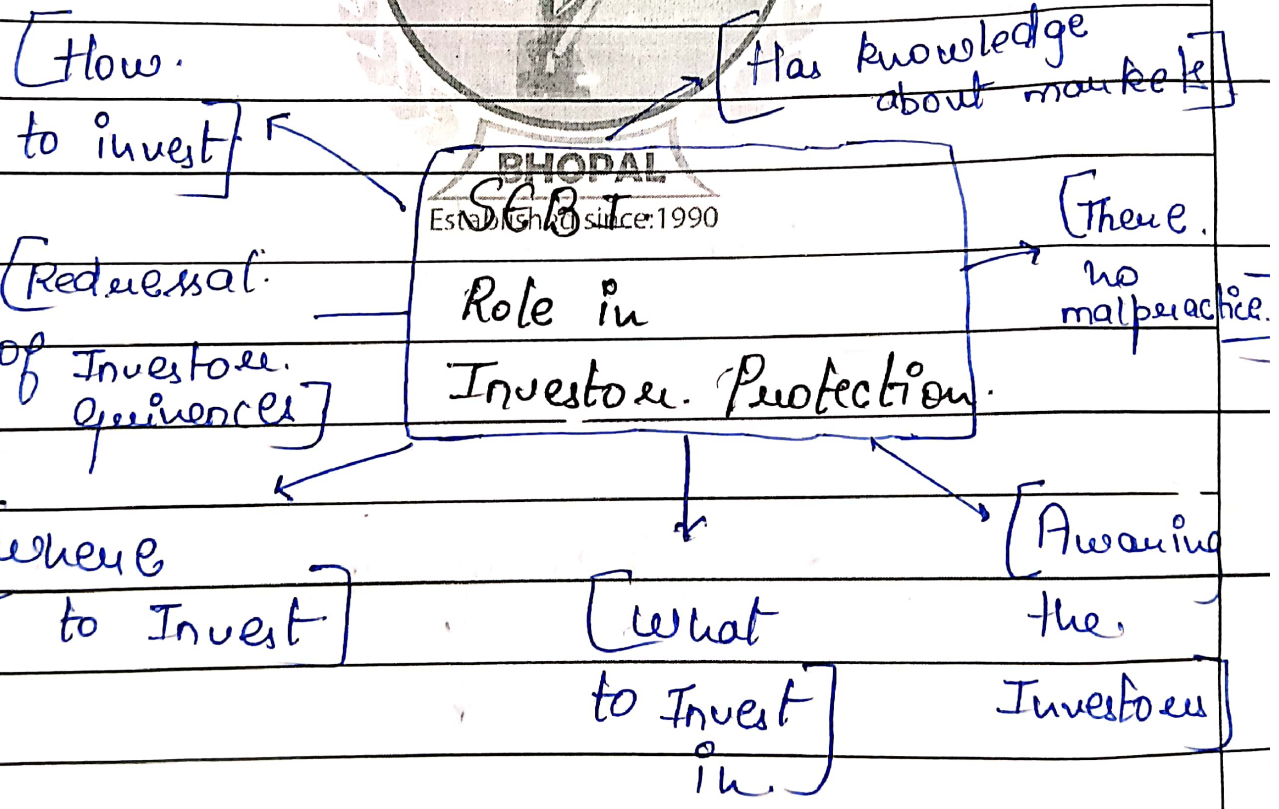 [How.
to invest]
[Has knowledge
about market]
BHOPAL
Established since:1990
SEBI
Role in
Investor. Protection.
[There.
no
malpractice.
[Redressal.
of Investor.
grivences]
where
to Invest]
[what
to Invest
in.]
[Awaring
the.
Investors]